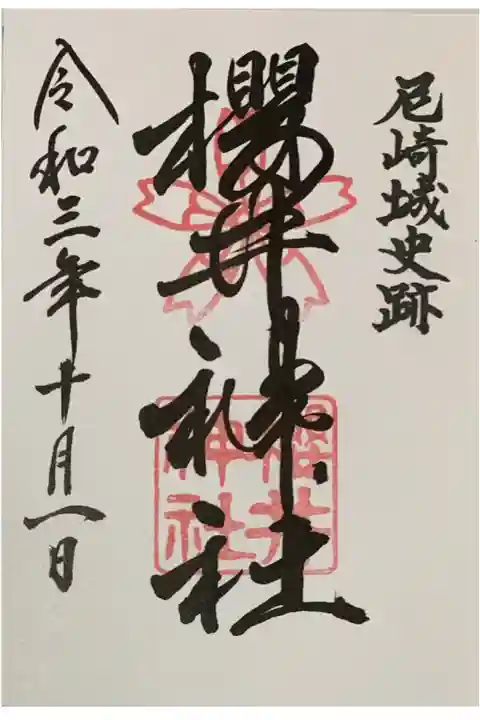 尼崎城史跡
櫻井神社
櫻井
神社
令和三年十月一日